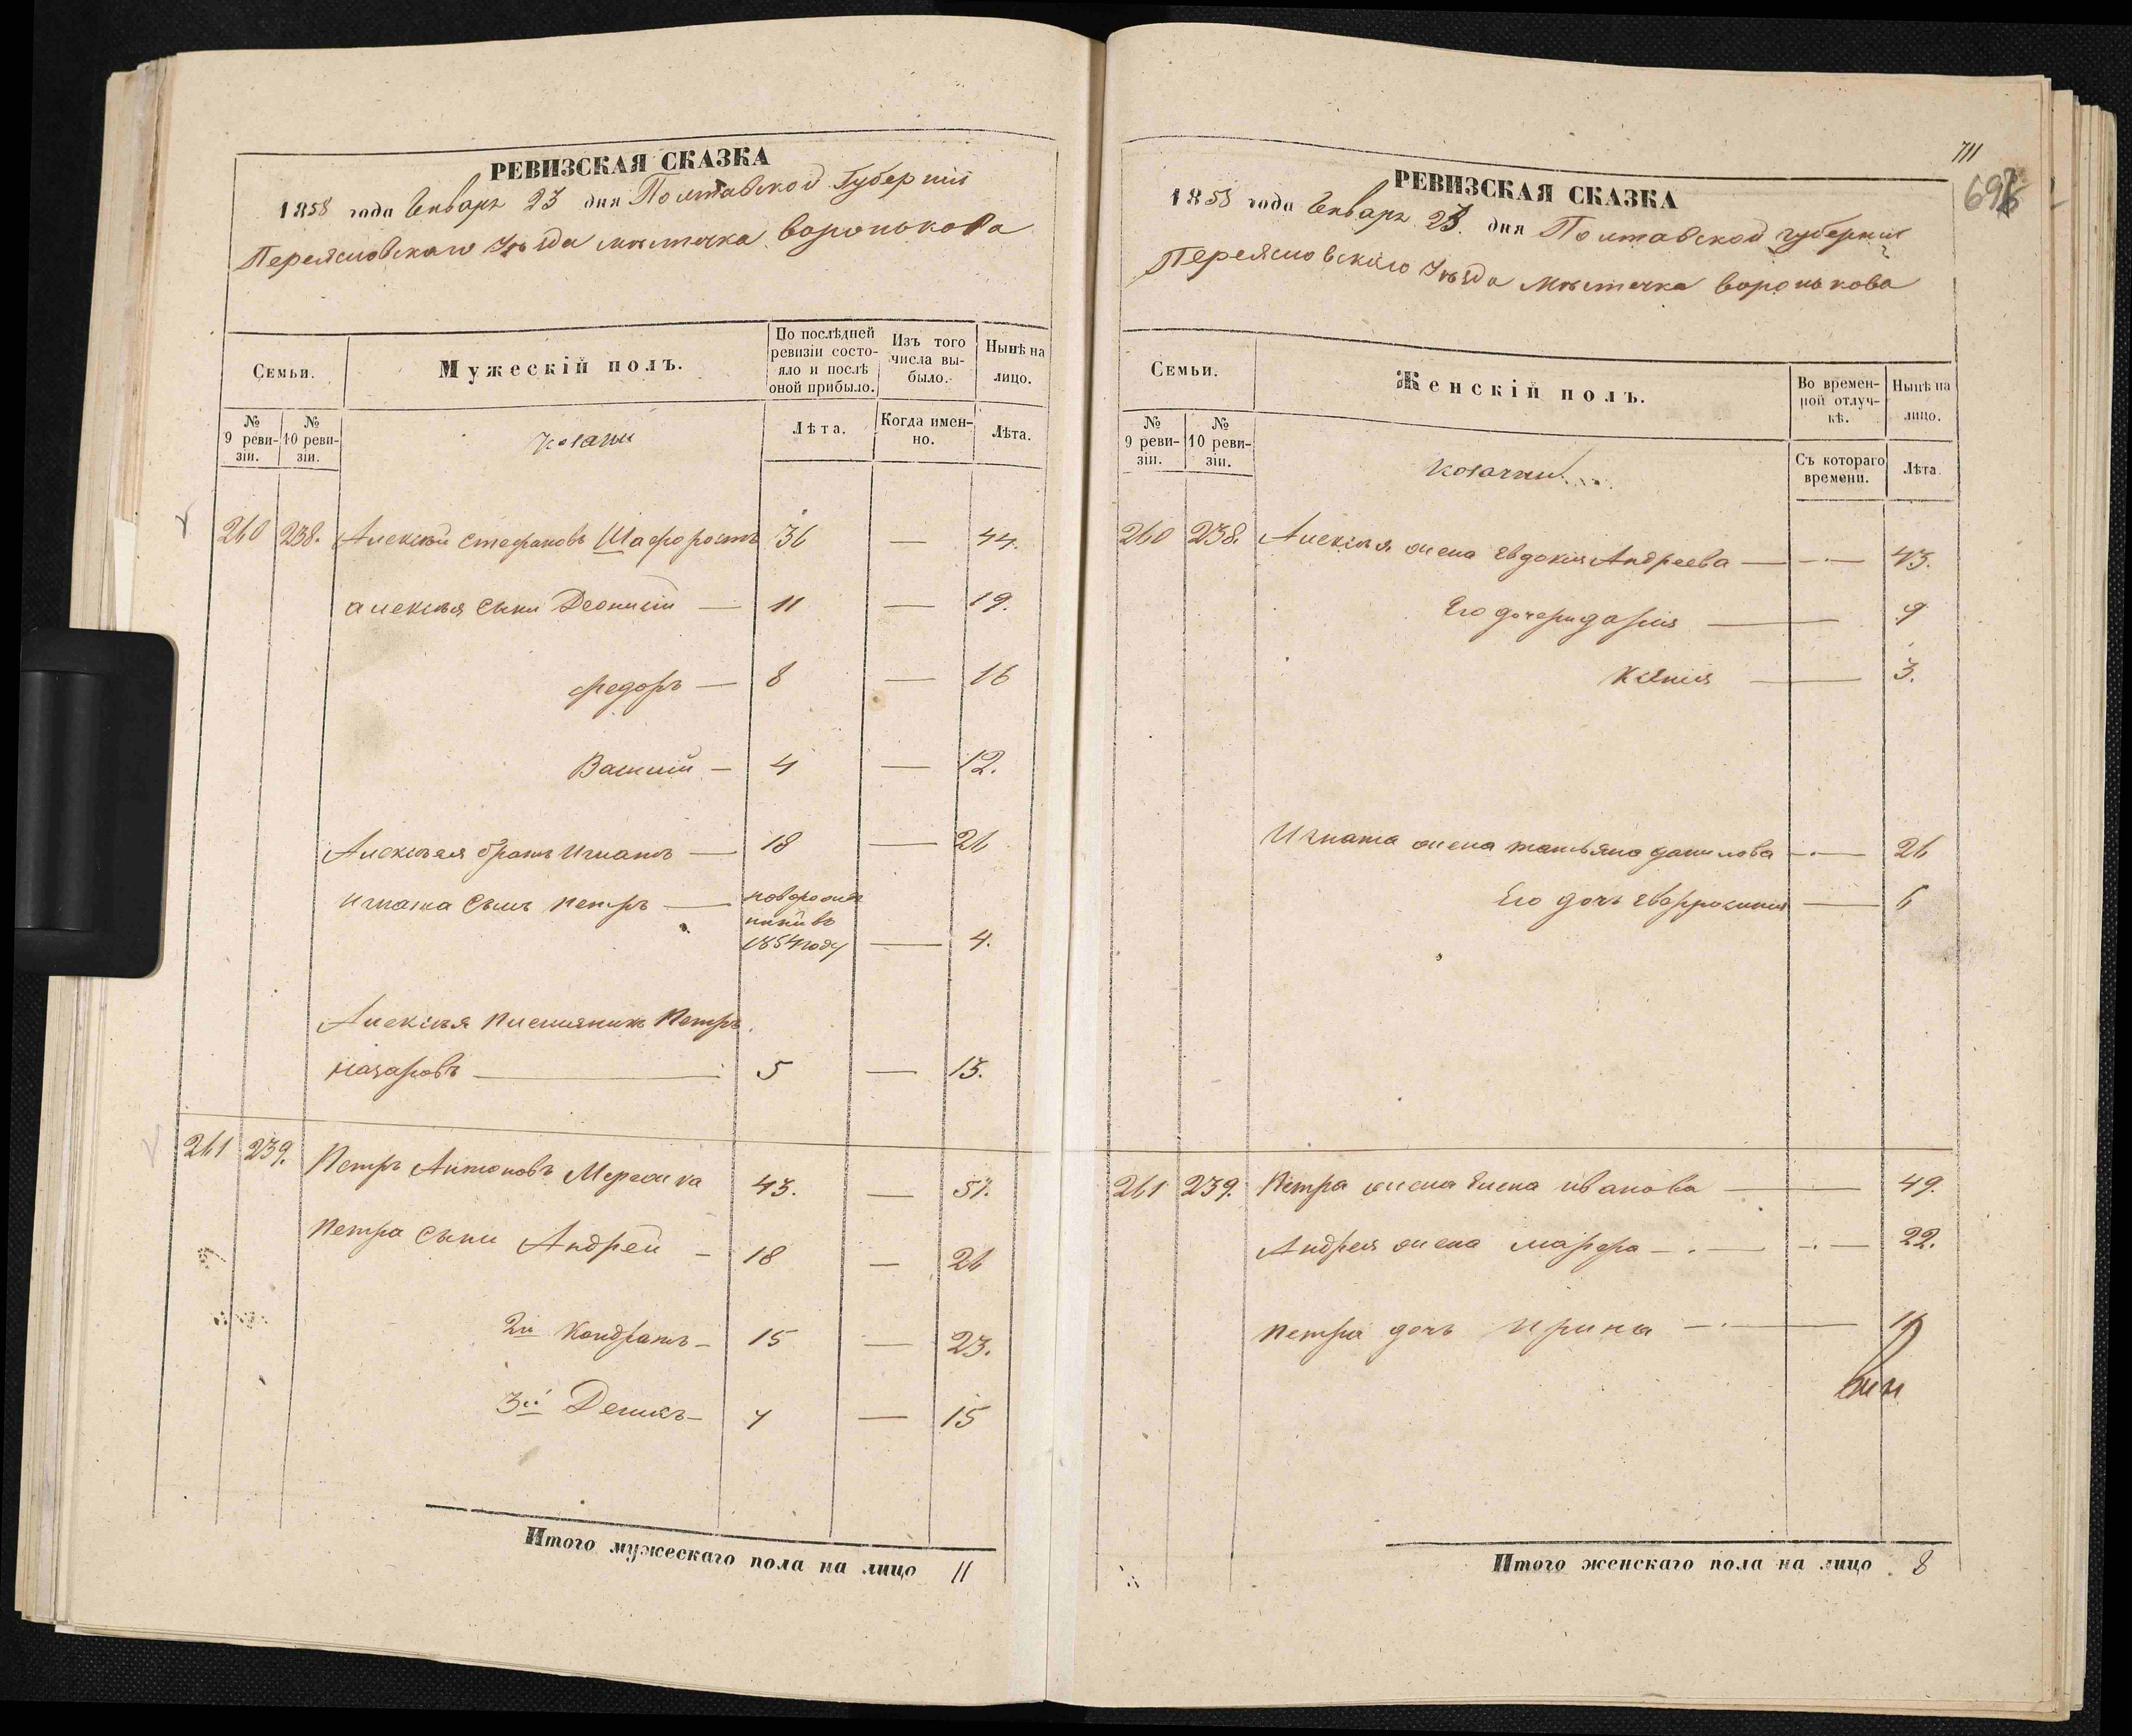 РЕВИЗСКАЯ СКАЗКА
1858 года Генваря 23 дня Полтавской Губерніи
Переясловскаго Уѣзда мѣстечка Воронькова
Семьи.
Мужескій полъ.
По послѣдней ревизіи состояло и послѣ оной прибыло.
Изъ того числа выбыло.
Нынѣ на лицо.
№ 9 ревизіи.
№ 10 ревизіи.
Козаки
Лѣта.
Когда именно.
Лѣта.
260 238. Алексѣй Стефановъ Шафоростъ 36 — 44.
Алексѣя сыны Деонисій — 11 — 19.
Федоръ — 8 — 16
Василій — 4 — 12.
Алексѣя братъ Игнатъ — 18 — 26
Игната сынъ Петръ — новорожденный въ 1854 году — 4.
Алексѣя племянникъ Петръ
Назаровъ — 5 — 13.
261 239. Петръ Антоновъ Мережка 43. — 51.
Петра сыны Андрей — 18 — 26
2й Кондратъ — 15 — 23.
3й Демидъ — 7 — 15
Итого мужескаго пола на лицо 11
711
РЕВИЗСКАЯ СКАЗКА
1858 года Генваря 23 дня Полтавской Губерніи
Переясловскаго Уѣзда мѣстечка Воронькова
Семьи.
Женскій полъ.
Во временной отлучкѣ.
Нынѣ на лицо.
№ 9 ревизіи.
№ 10 ревизіи.
Козачки
Съ котораго времени.
Лѣта.
260 238. Алексѣя жена Евдокія Андреева — — 43.
Его дочери Дарія — 9
Ксенія — 3.
Игната жена Татьяна Данилова — — 26
Его дочь Евфросинія — 6
261 239. Петра жена Елена Иванова — 49.
Андрея жена Марфа — — 22.
Петра дочь Ирина —
Итого женскаго пола на лицо 8